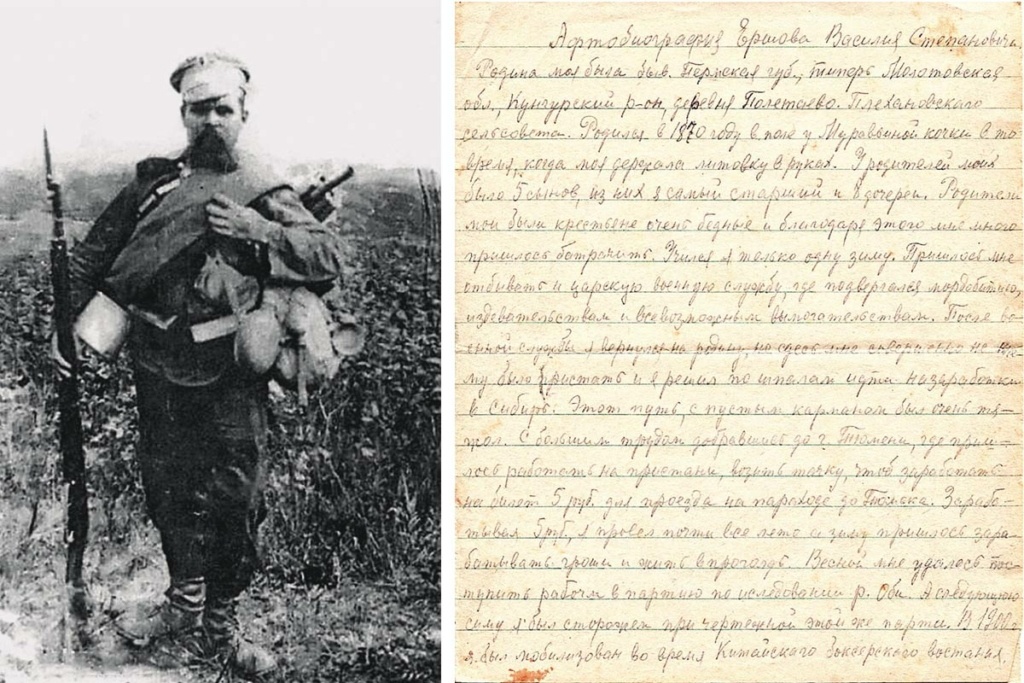 Афтобиография Ершова Василия Степановича.
Родина моя была быв. Пермская губ., теперь Молотовская
обл., Кунгурский р-он, деревня Полетаево. Плехановского
сельсовета. Родился в 1870 году в поле у Муравьиной кочки в то
время, когда моя держала литовку в руках. У родителей моих
было 5 сынов, из них я самый старший и 8 дочерей. Родители
мои были крестьяне очень бедные и благодаря этого мне много
пришлось батрачить. Учился я только одну зиму. Пришлось мне
отбывать и царскую военную службу, где подвергался мордобитию,
издевательствам и всевозможным вымогательствам. После во-
енной службы я вернулся на родину, но здесь мне совершенно не к че-
му было пристать и я решил по шпалам идти на заработки
в Сибирь. Этот путь, с пустым карманом был очень тя-
жол. С большим трудом добравшись до г. Тюмени, где приш-
лось работать на пристани, возить тачку, чтоб заработать
на билет 5 руб. для проезда на пароходе до Томска. Зарабо-
тывая 5 руб., я провел почти все лето а зиму пришлось зара-
батывать гроши и жить впроголодь. Весной мне удалось пос-
тупить рабочи в партию по иследовании р. Оби. А следующую
зиму я был сторожем при чертежной этой же парти. В 1900 г
я был мобилизован во время Китайского боксерского востания.